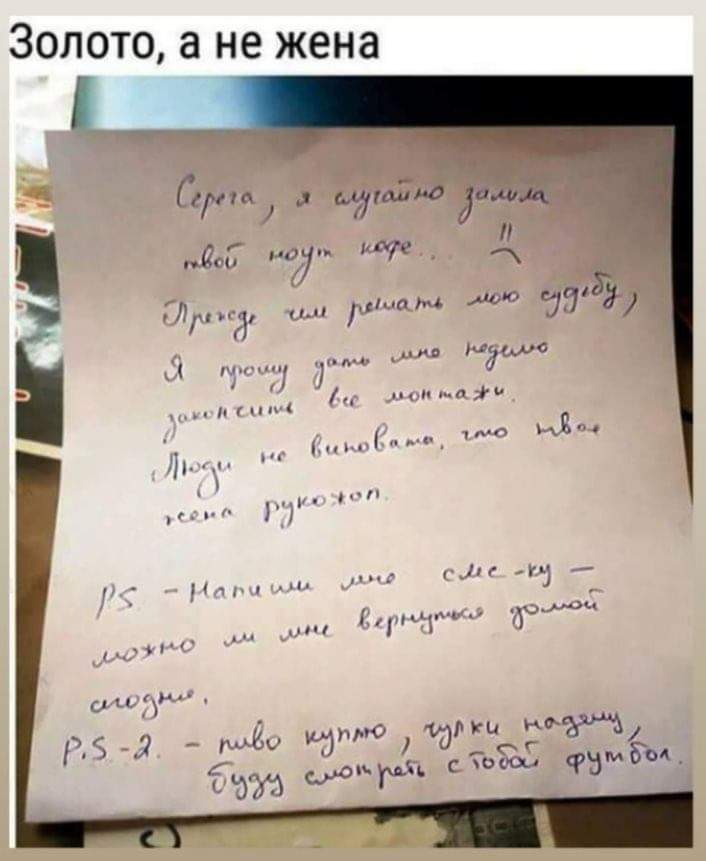 Золото, а не жена
Серега, я случайно залила
твой ноут кофе...
Прежде чем решать мою судьбу,
Я прошу дать мне неделю
закончить все монтажи.
Люди не виновата, что твоя
жена рукожоп.
PS. - Напиши мне смс-ку -
можно ли мне вернуться домой
сегодня.
P.S-2. - пиво куплю, чулки надену,
буду смотреть с тобой футбол.